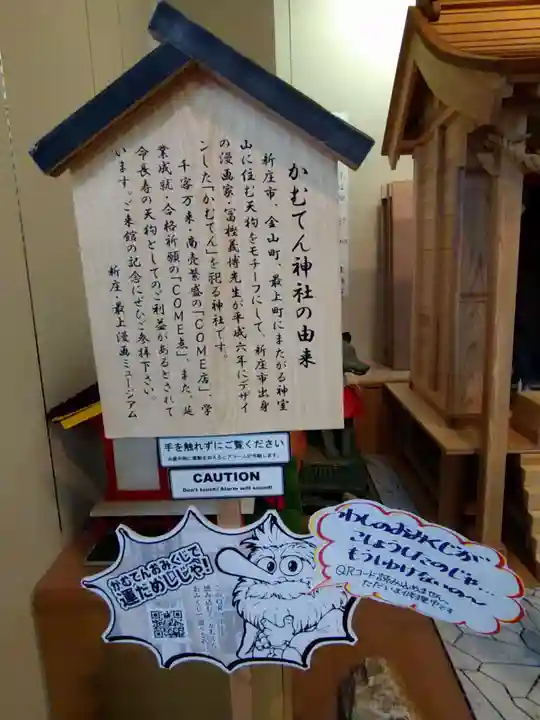 かむてん神社の由来
新庄市、金山町、最上町にまたがる神室
山に住む天狗をモチーフにして、新庄市出身
の漫画家・冨樫義博先生が平成六年にデザイ
ンした「かむてん」を祀る神社です。
千客万来・商売繁盛の「COME店」、学
業成就・合格祈願の「COME点」、また、延
命長寿の天狗としてのご利益があるとされて
います。ご来館の記念にぜひご参拝下さい。
新庄・最上漫画ミュージアム
手を触れずにご覧ください
CAUTION
Don't touch! Alarm will sound!
かむてんおみくじで
運だめしじゃ!
わしのおみくじが
こしょうしたのじゃ…
もうしわけないの〜
QRコード読み込めません
ただいま修理中です